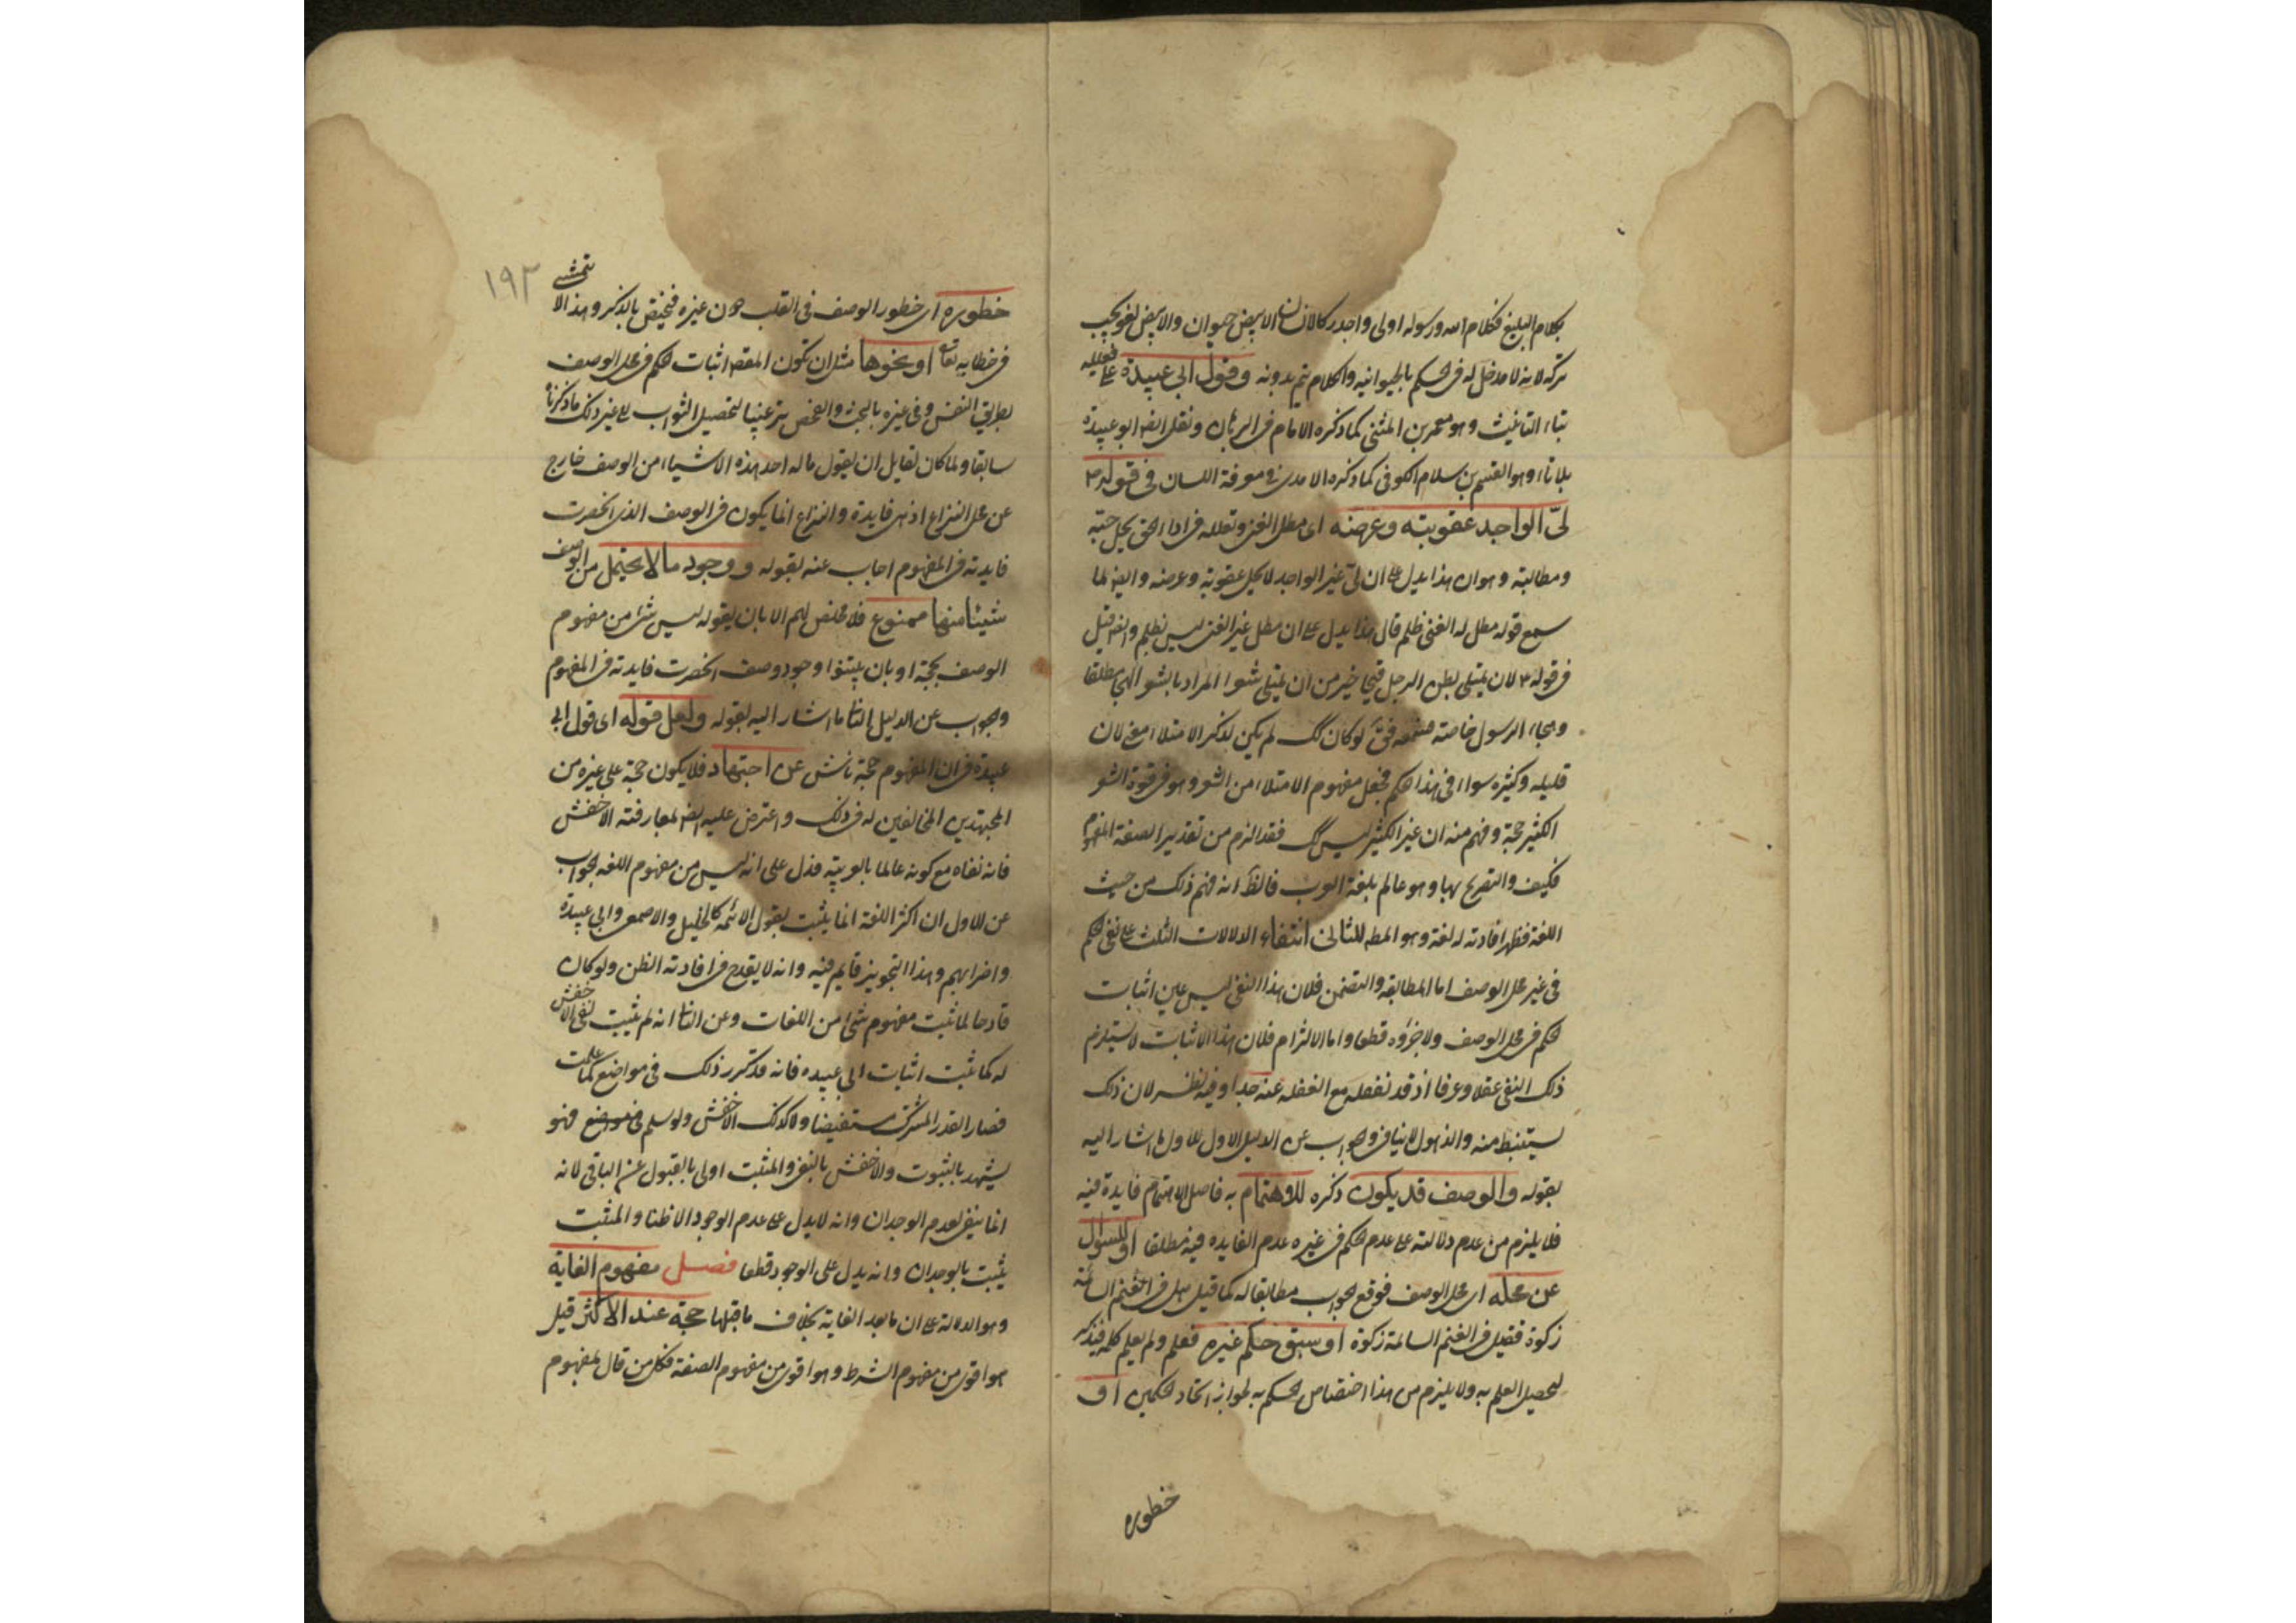 بكلام البليغ فكلام الله ورسوله اولى واجدر كالانسان الابيض حيوان والابيض لغو يجب
تركه لانه لا مدخل له فى الحكم بالحيوانيه والكلام يتم بدونه وقول ابى عبيدة
بتاء التانيث وهو معمر بن المثنى كما ذكره الامام فى البرهان ونقل ايضا ابو عبيدة
بلا تاء وهو القسم بن سلام الكوفى كما ذكره الامدى فى معرفة اللسان فى قوله
لىّ الواجد عقوبته وعرضه اى مطل الغنى وتعلله فى اداء الحق يحل حبسه
ومطالبته وهو ان هذا يدل على ان لىّ غير الواجد لا يحل عقوبته وعرضه وايضا لما
سمع قوله مطل الغنى ظلم قال هذا يدل على ان مطل غير الغنى ليس بظلم وايضا قيل
فى قوله لان يمتلى بطن الرجل قيحا خير من ان يمتلى شعرا المراد بالشعر الهجاء مطلقا
وهجاء الرسول خاصة فقال لو كان كك لم يكن لذكر الامتلاء معنى لان
قليله وكثيره سواء فى هذا الحكم فجعل مفهوم الامتلاء من الشعر وهو فى قوة الشعر
الكثير حجة وفهم منه ان غير الكثير ليس كك فقد الزم من تقدير الصفة المفهوم
فكيف والتصريح بها وهو عالم بلغة العرب فالظ انه فهم ذلك من حيث
اللغة فظهر افادته له لغة وهو المط للثانى انتفاء الدلالات الثلث على نفى الحكم
فى غير محل الوصف اما المطابقه والتضمن فلان هذا النفى ليس عين اثبات
الحكم فى محل الوصف ولا جزؤه قطعا واما الالتزام فلان هذا الاثبات لا يستلزم
ذلك النفى عقلا وعرفا اذ قد نفعله مع الغفله عنه جدا وفيه نظر لان ذلك
يستنبط منه والذهول لا ينافى والجواب عن الدليل الاول للاول ما اشار اليه
بقوله والوصف قد يكون ذكره للاهتمام به فاصل الاهتمام فايدة فيه
فلا يلزم من عدم دلالته على عدم الحكم فى غيره عدم الفايده فيه مطلقا او للسؤال
عن محله اى محل الوصف فوقع الجواب مطابقا له كما قيل هل فى الغنم السائمة
زكوة فقيل فى الغنم السائمة زكوة او سبق حكم غيره فعلم ولم يعلم حكمه فيذكر
لتحصيل العلم به ولا يلزم من هذا اختصاص الحكم به لجواز اتحاد الحكمين او
خطوره
١٩٢
خطوره اى خطور الوصف فى القلب دون غيره فيختص بالذكر وهذا لا يتمشى
فى خطابه تعالى او نحوها مثل ان تكون المقصد اثبات الحكم فى محل الوصف
بطريق النص وفى غيره بالبحث والفحص ترغيبا لتحصيل الثواب الى غير ذلك ما ذكرناه
سابقا ولما كان لقايل ان يقول ما له احد هذه الاشياء من الوصف خارج
عن محل النزاع اذ هى فايدة والنزاع انما يكون فى الوصف الذى انحصرت
فايدته فى المفهوم اجاب عنه بقوله ووجود ما لا يحتمل من الوصف
شيئا منها ممنوع فلا مخلص لهم الا بان يقولوا ليس شئ من مفهوم
الوصف بحجة او بان يثبتوا وجود وصف انحصرت فايدته فى المفهوم
والجواب عن الدليل الثانى ما اشار اليه بقوله ولعل قوله اى قول ابى
عبيدة فى ان المفهوم حجة ناش عن اجتهاد فلا يكون حجة على غيره من
المجتهدين المخالفين له فى ذلك واعترض عليه ايضا لمعارضة الاخفش
فانه نفاه مع كونه عالما بالعربيه فدل على انه ليس من مفهوم اللغه والجواب
عن الاول ان اكثر اللغة انما يثبت بقول الائمه كالخليل والاصمعى وابى عبيدة
واضرابهم وهذا التجويز قايم فيه وانه لا يقدح فى افادته الظن ولو كان
قادحا لما ثبت مفهوم شئ من اللغات وعن الثانى انه لم يثبت نفى الاخفش
له كما ثبت اثبات ابى عبيده فانه قد تكرر ذلك فى مواضع كما علمت
فصار القدر المشترك مستفيضا ولا كذلك الاخفش ولو سلم فهو
يشهد بالثبوت والاخفش بالنفى والمثبت اولى بالقبول من النافى لانه
انما ينفى لعدم الوجدان وانه لا يدل على عدم الوجود الا ظنا والمثبت
يثبت بالوجدان وانه يدل على الوجود قطعا فصل مفهوم الغاية
وهو الدلالة على ان ما بعد الغاية بخلاف ما قبلها حجة عند الاكثر قيل
هو اقوى من مفهوم الشرط وهو اقوى من مفهوم الصفة فكل من قال لمفهوم